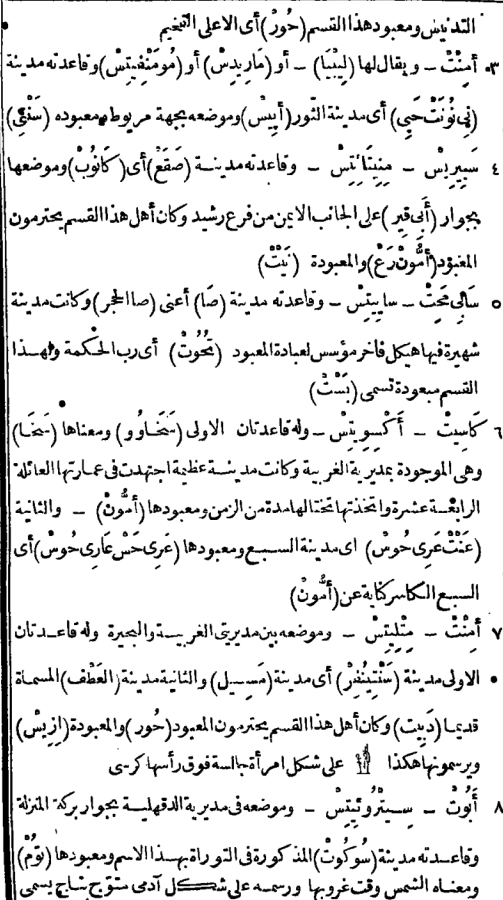 التدنيس ومعبود هذا القسم (حُورْ) أى الاعلى الفخيم
٣ أَمِنْتْ - ويقال لها (لِيبْيَا) - أو (مَارِيدِسْ) أو (مُومَنْفِيتِسْ) وقاعدته مدينة
(نِى نُونَتْ حَبِى) أى مدينة الثور (أَبِيسْ) وموضعه بجهة مريوط ومعبوده (سَنْتِى)
٤ سَبِيرِيسْ - مِنِيتَائِتِسْ - وقاعدته مدينة (صَقَعْ) أى (كَانُوبْ) وموضعها
بجوار (أَبى قير) على الجانب الايمن من فرع رشيد وكان أهل هذا القسم يحترمون
المعبود (أَمُّونْ رَعْ) والمعبودة (نَيْتْ)
٥ سَابى مَحِتْ - سايِيتِسْ - وقاعدته مدينة (صَا) أعنى (صا الحجر) وكانت مدينة
شهيرة فيها هيكل فاخر مؤسس لعبادة المعبود (تَحُوتْ) أى رب الحكمة ولهذا
القسم معبودة تسمى (بَسْتْ)
٦ كَاسِيتْ - أَكْسوِيتِسْ - وله قاعدتان الاولى (سَخَاوُو) ومعناها (سَخَا)
وهى الموجودة بمديرية الغربية وكانت مدينة عظيمة اجتهدت فى عمارتها العائلة
الرابعة عشرة واتخذتها تختا لها مدة من الزمن ومعبودها (أمُّونْ) - والثانية
(عَنْتْ عَرِى حُوسْ) اى مدينة السبع ومعبودها (عَرِى حَسْ عَارِى حُوسْ) أى
السبع الكاسر كناية عن (أَمُّونْ)
٧ أَمِنْتْ - مِتْلِيتِسْ - وموضعه بين مديريتى الغربية والبحيرة وله قاعدتان
الاولى مدينة (سَنْتِينُفِرْ) أى مدينة (مَسِيل) والثانية مدينة (العَطْف) المسماة
قديما (دَبِيت) وكان أهل هذا القسم يحترمون المعبود (حُور) والمعبودة (ازِيسْ)
ويرسمونها هكذا على شكل امرأة جالسة فوق رأسها كرسى
٨ أَبُوتْ - سِيترُوئِيتِسْ - وموضعه فى مديرية الدقهلية بجوار بركة المنزلة
وقاعدته مدينة (سُوكُوتْ) المذكورة فى التوراة بهذا الاسم ومعبودها (تُومْ)
ومعناه الشمس وقت غروبها ورسمه على شكل آدمى متوّج بتاج يسمى